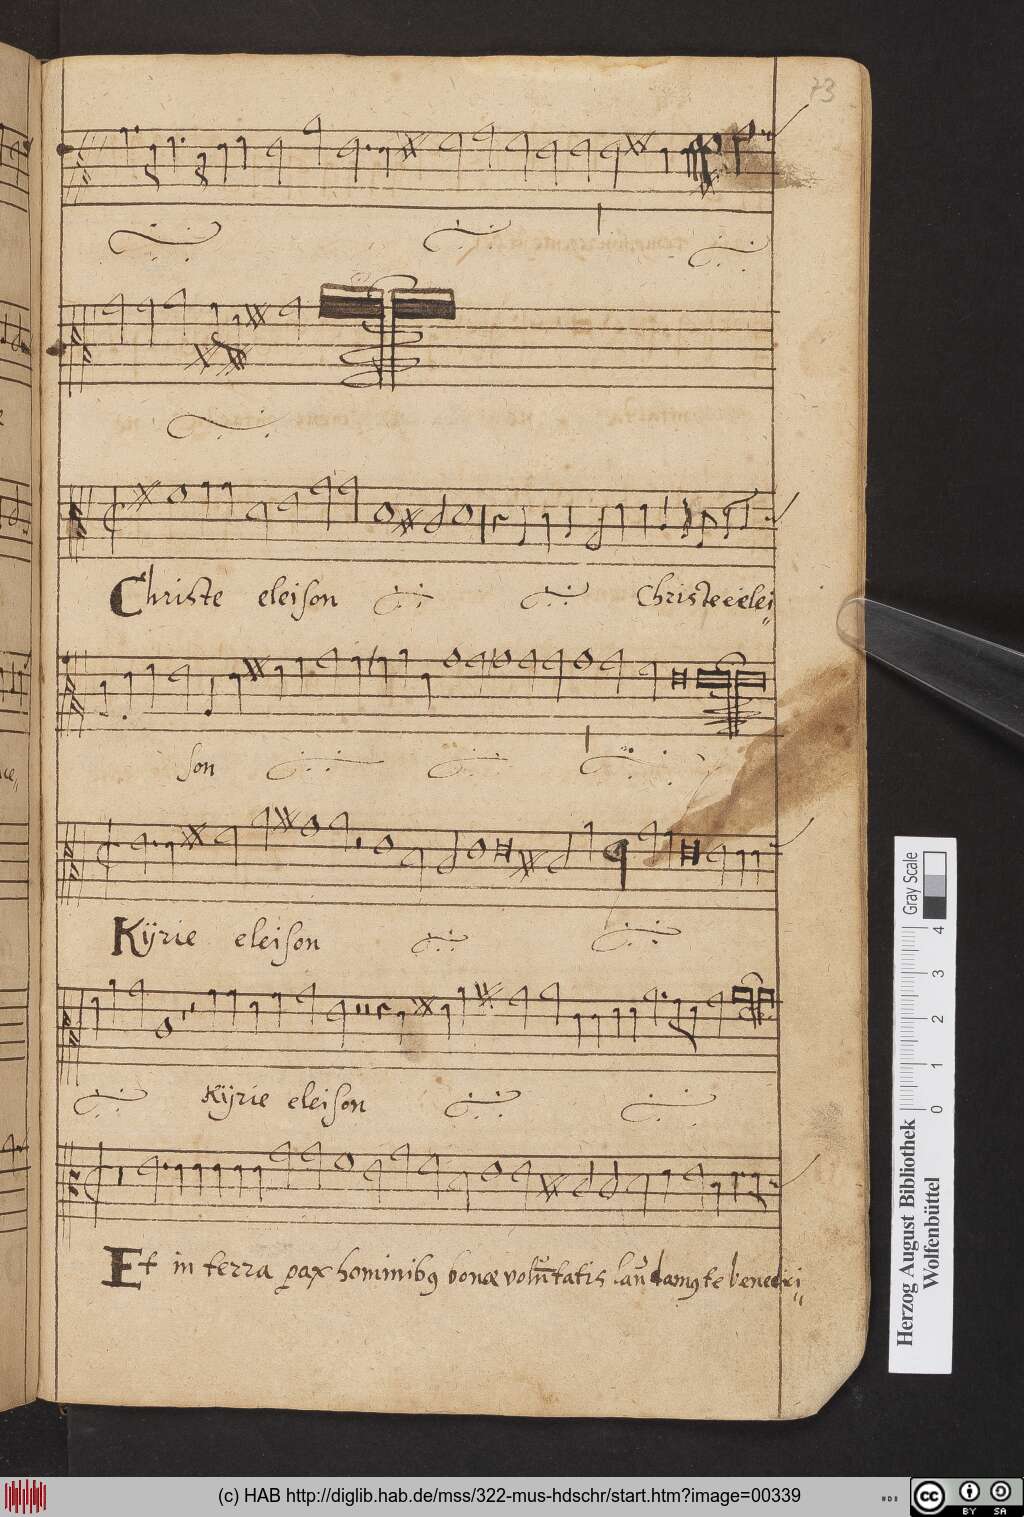 73
Christe eleison Christe e elei
son
Kÿrie eleison
Kÿrie eleison
Et in terra pax hominibꝯ bonæ volūtatis laudamꝯ te benedici
Gray Scale
0 1 2 3 4
Herzog August Bibliothek
Wolfenbüttel
(c) HAB http://diglib.hab.de/mss/322-mus-hdschr/start.htm?image=00339
cc BY SA